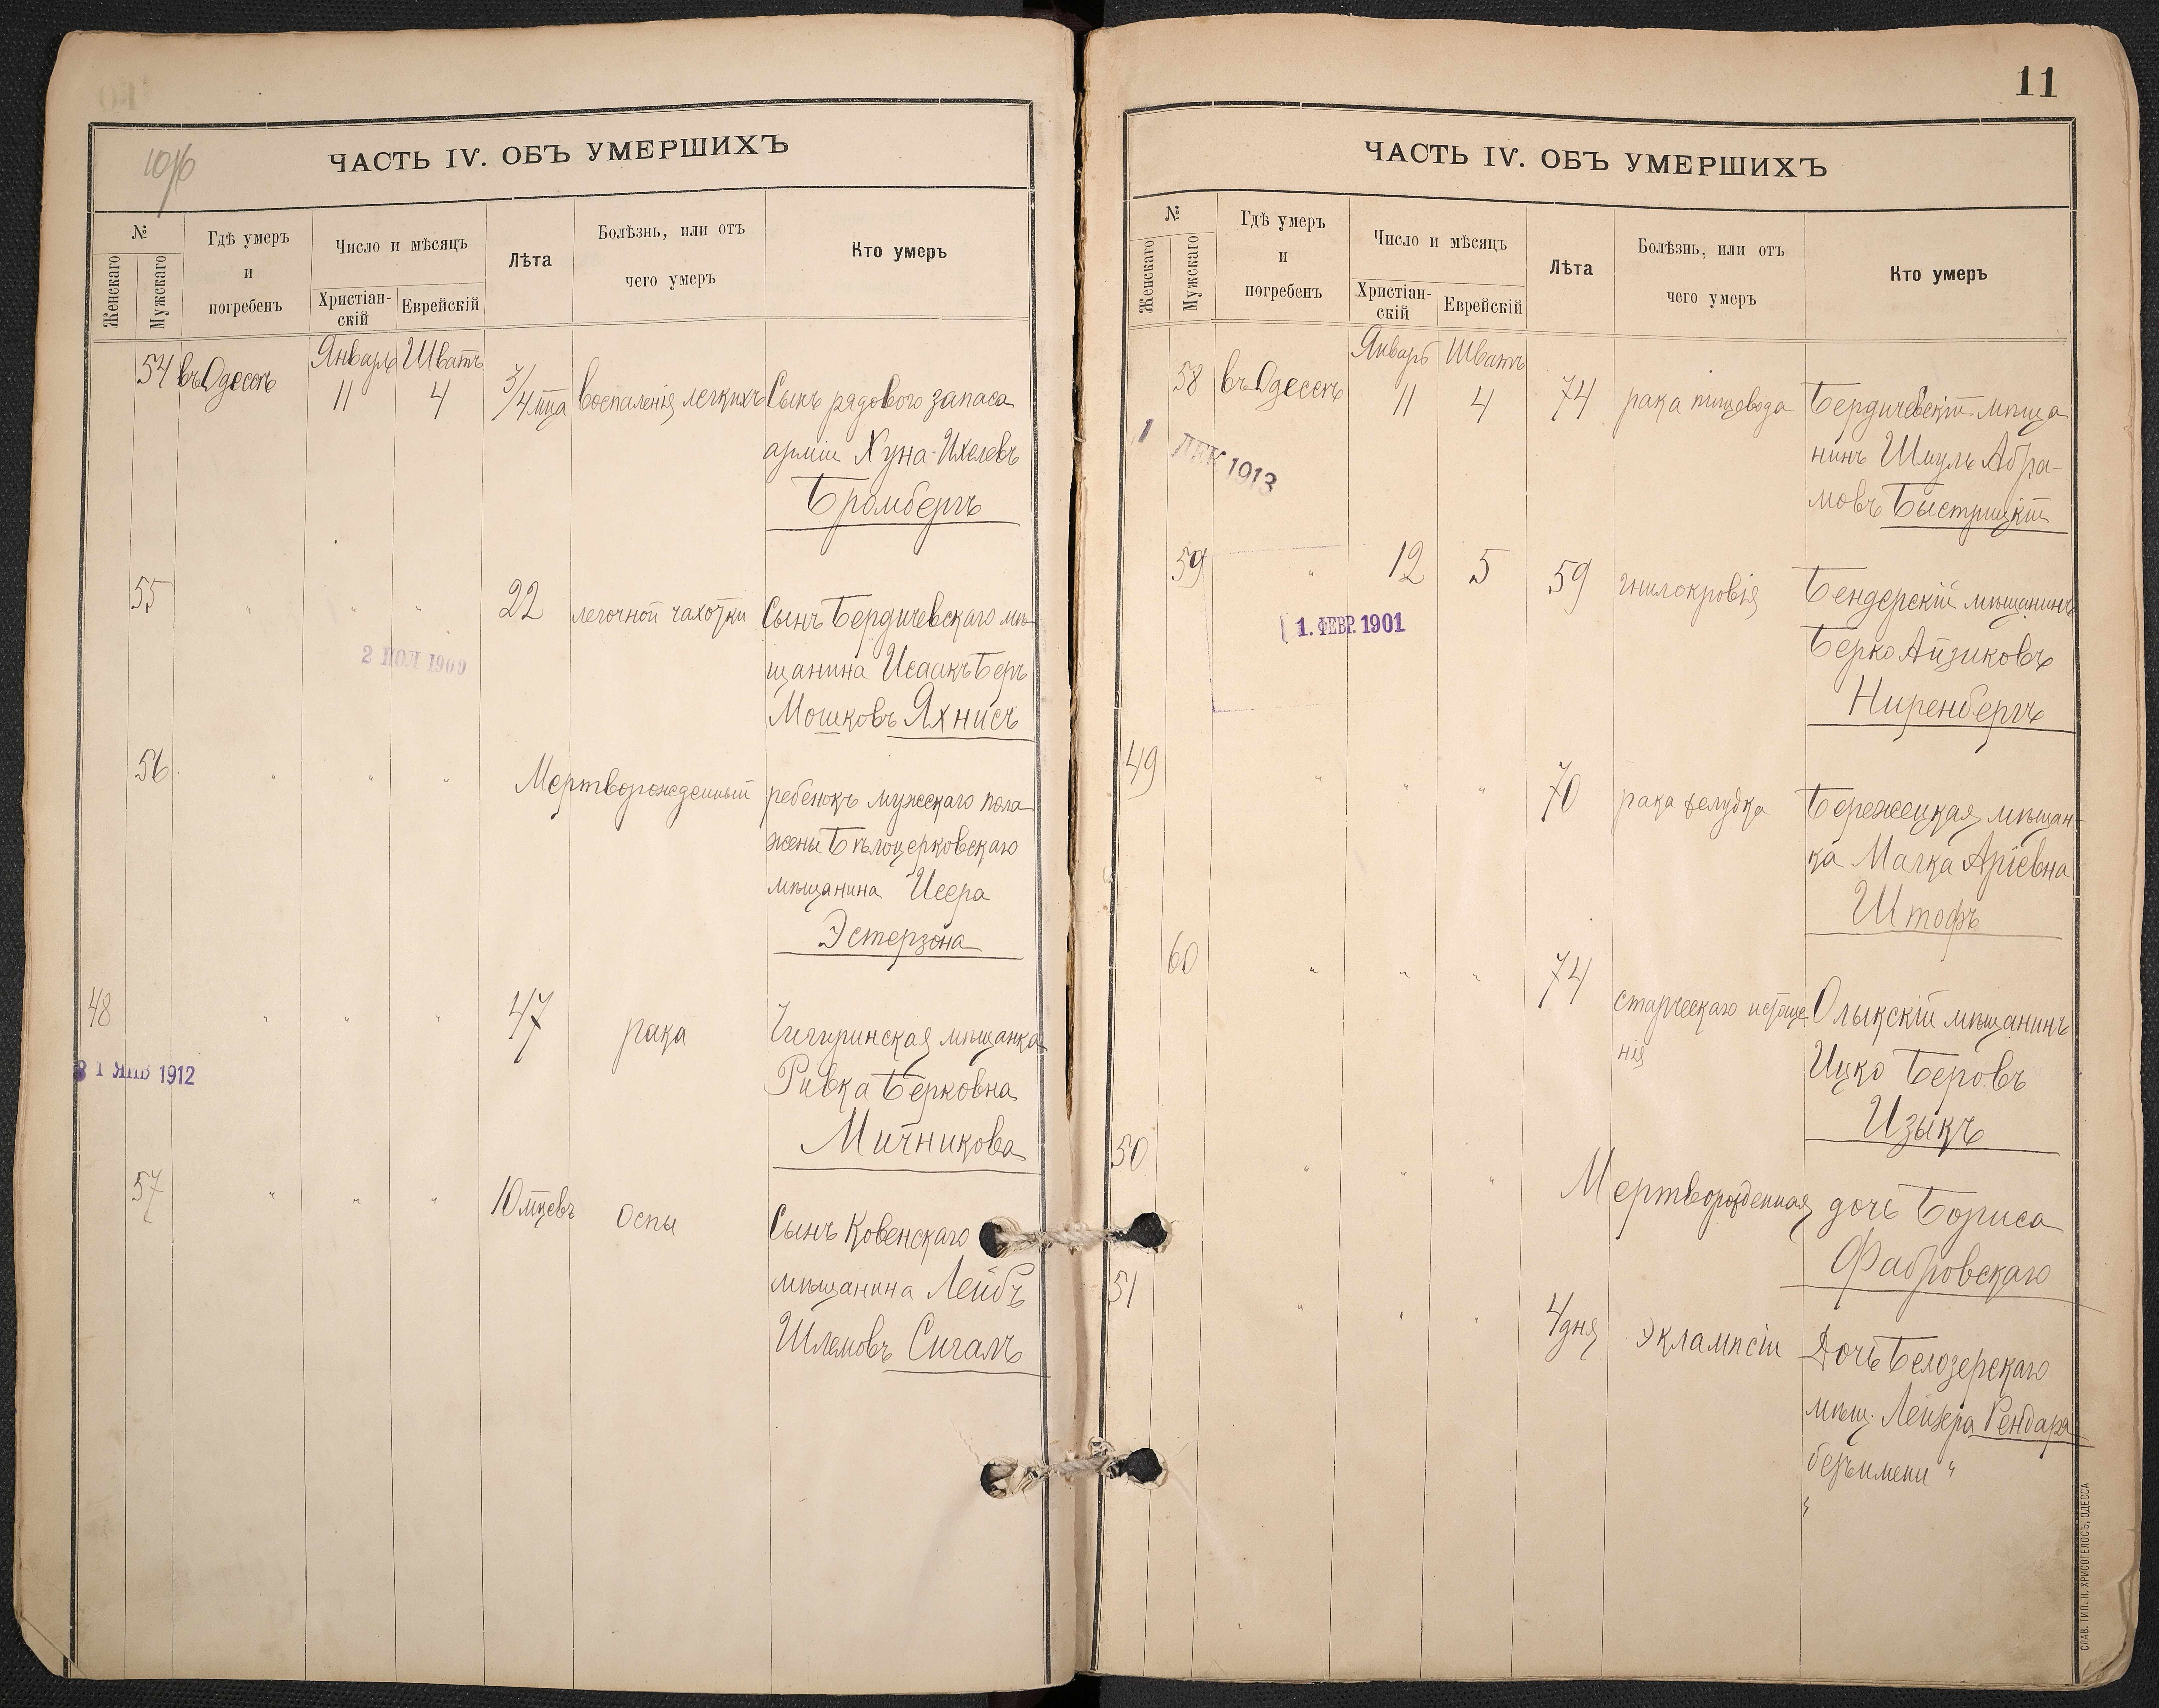 10/10
ЧАСТЬ IV. ОБЪ УМЕРШИХЪ
№
Женскаго
Мужскаго
Гдѣ умеръ
и
погребенъ
Число и мѣсяцъ
Христіан-
скій
Еврейскій
Лѣта
Болѣзнь, или отъ
чего умеръ
Кто умеръ
Январь Шватъ
54 въ Одессѣ 11 4 3/4 мца воспаленія легкихъ Сынъ рядового запаса
арміи Хуна-Ихелевъ
Бромбергъ
55 " " " 22 легочной чахотки Сынъ Бердичевскаго мѣ-
2 ІЮЛ 1909
щанина Исаакъ Беръ
Мошковъ Яхнисъ
56 " " " Мертворожденный ребенокъ мужскаго пола
жены Бѣлоцерковскаго
мѣщанина Исера
Эстерзона
48 " " " 47 рака Чигиринская мѣщанка
31 ЯНВ 1912
Ривка Берковна
Мичникова
57 " " " 10 мцевъ Оспы Сынъ Ковенскаго
мѣщанина Лейбъ
Шлемовъ Сигалъ
11
ЧАСТЬ IV. ОБЪ УМЕРШИХЪ
№
Женскаго
Мужскаго
Гдѣ умеръ
и
погребенъ
Число и мѣсяцъ
Христіан-
скій
Еврейскій
Лѣта
Болѣзнь, или отъ
чего умеръ
Кто умеръ
Январь Шватъ
58 въ Одессѣ 11 4 74 рака пищевода Бердичевскій мѣща
1 ДЕК 1913
нинъ Шмуль Абра-
мовъ Быстрицкій
59 " 12 5 59 гнилокровія Бендерскій мѣщанинъ
1. ФЕВР. 1901
Берко Айзиковъ
Ниренбергъ
49 " " " 70 рака желудка Бережецкая мѣщан-
ка Малка Аріевна
Штофъ
60 " " " 74 старческаго истоще Олыкскій мѣщанинъ
нія
Ицко Беровъ
Изыкъ
50 " " " Мертворожденная дочь Бориса
Фабровскаго
51 " " " 4 дня Эклампсіи Дочь Белозерскаго
мѣщ. Лейзера Рендара
безъ имени "
"
СЛАВ. ТИП. Н. ХРИСОГЕЛОСЪ, ОДЕССА